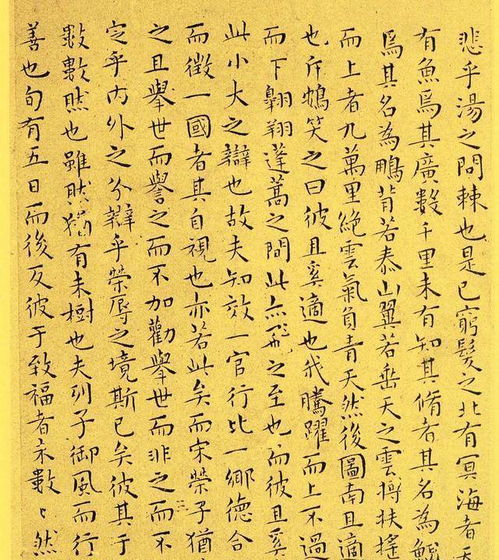 悲乎湯之問棘也是已窮髮之北有冥海者天
有魚焉其廣數千里未有知其脩者其名為鯤
焉其名為鵬背若泰山翼若垂天之雲摶扶搖
而上者九萬里絕雲氣負青天然後圖南且適
也斥鴳笑之曰彼且奚適也我騰躍而上不過
而下翱翔蓬蒿之間此亦飛之至也而彼且奚
此小大之辯也故夫知效一官行比一鄉德合
而徵一國者其自視也亦若此矣而宋榮子猶
之且舉世而譽之而不加勸舉世而非之而不
定乎內外之分辯乎榮辱之境斯已矣彼其于
數數然也雖然猶有未樹也夫列子御風而行
善也旬有五日而後反彼于致福者未數〻然